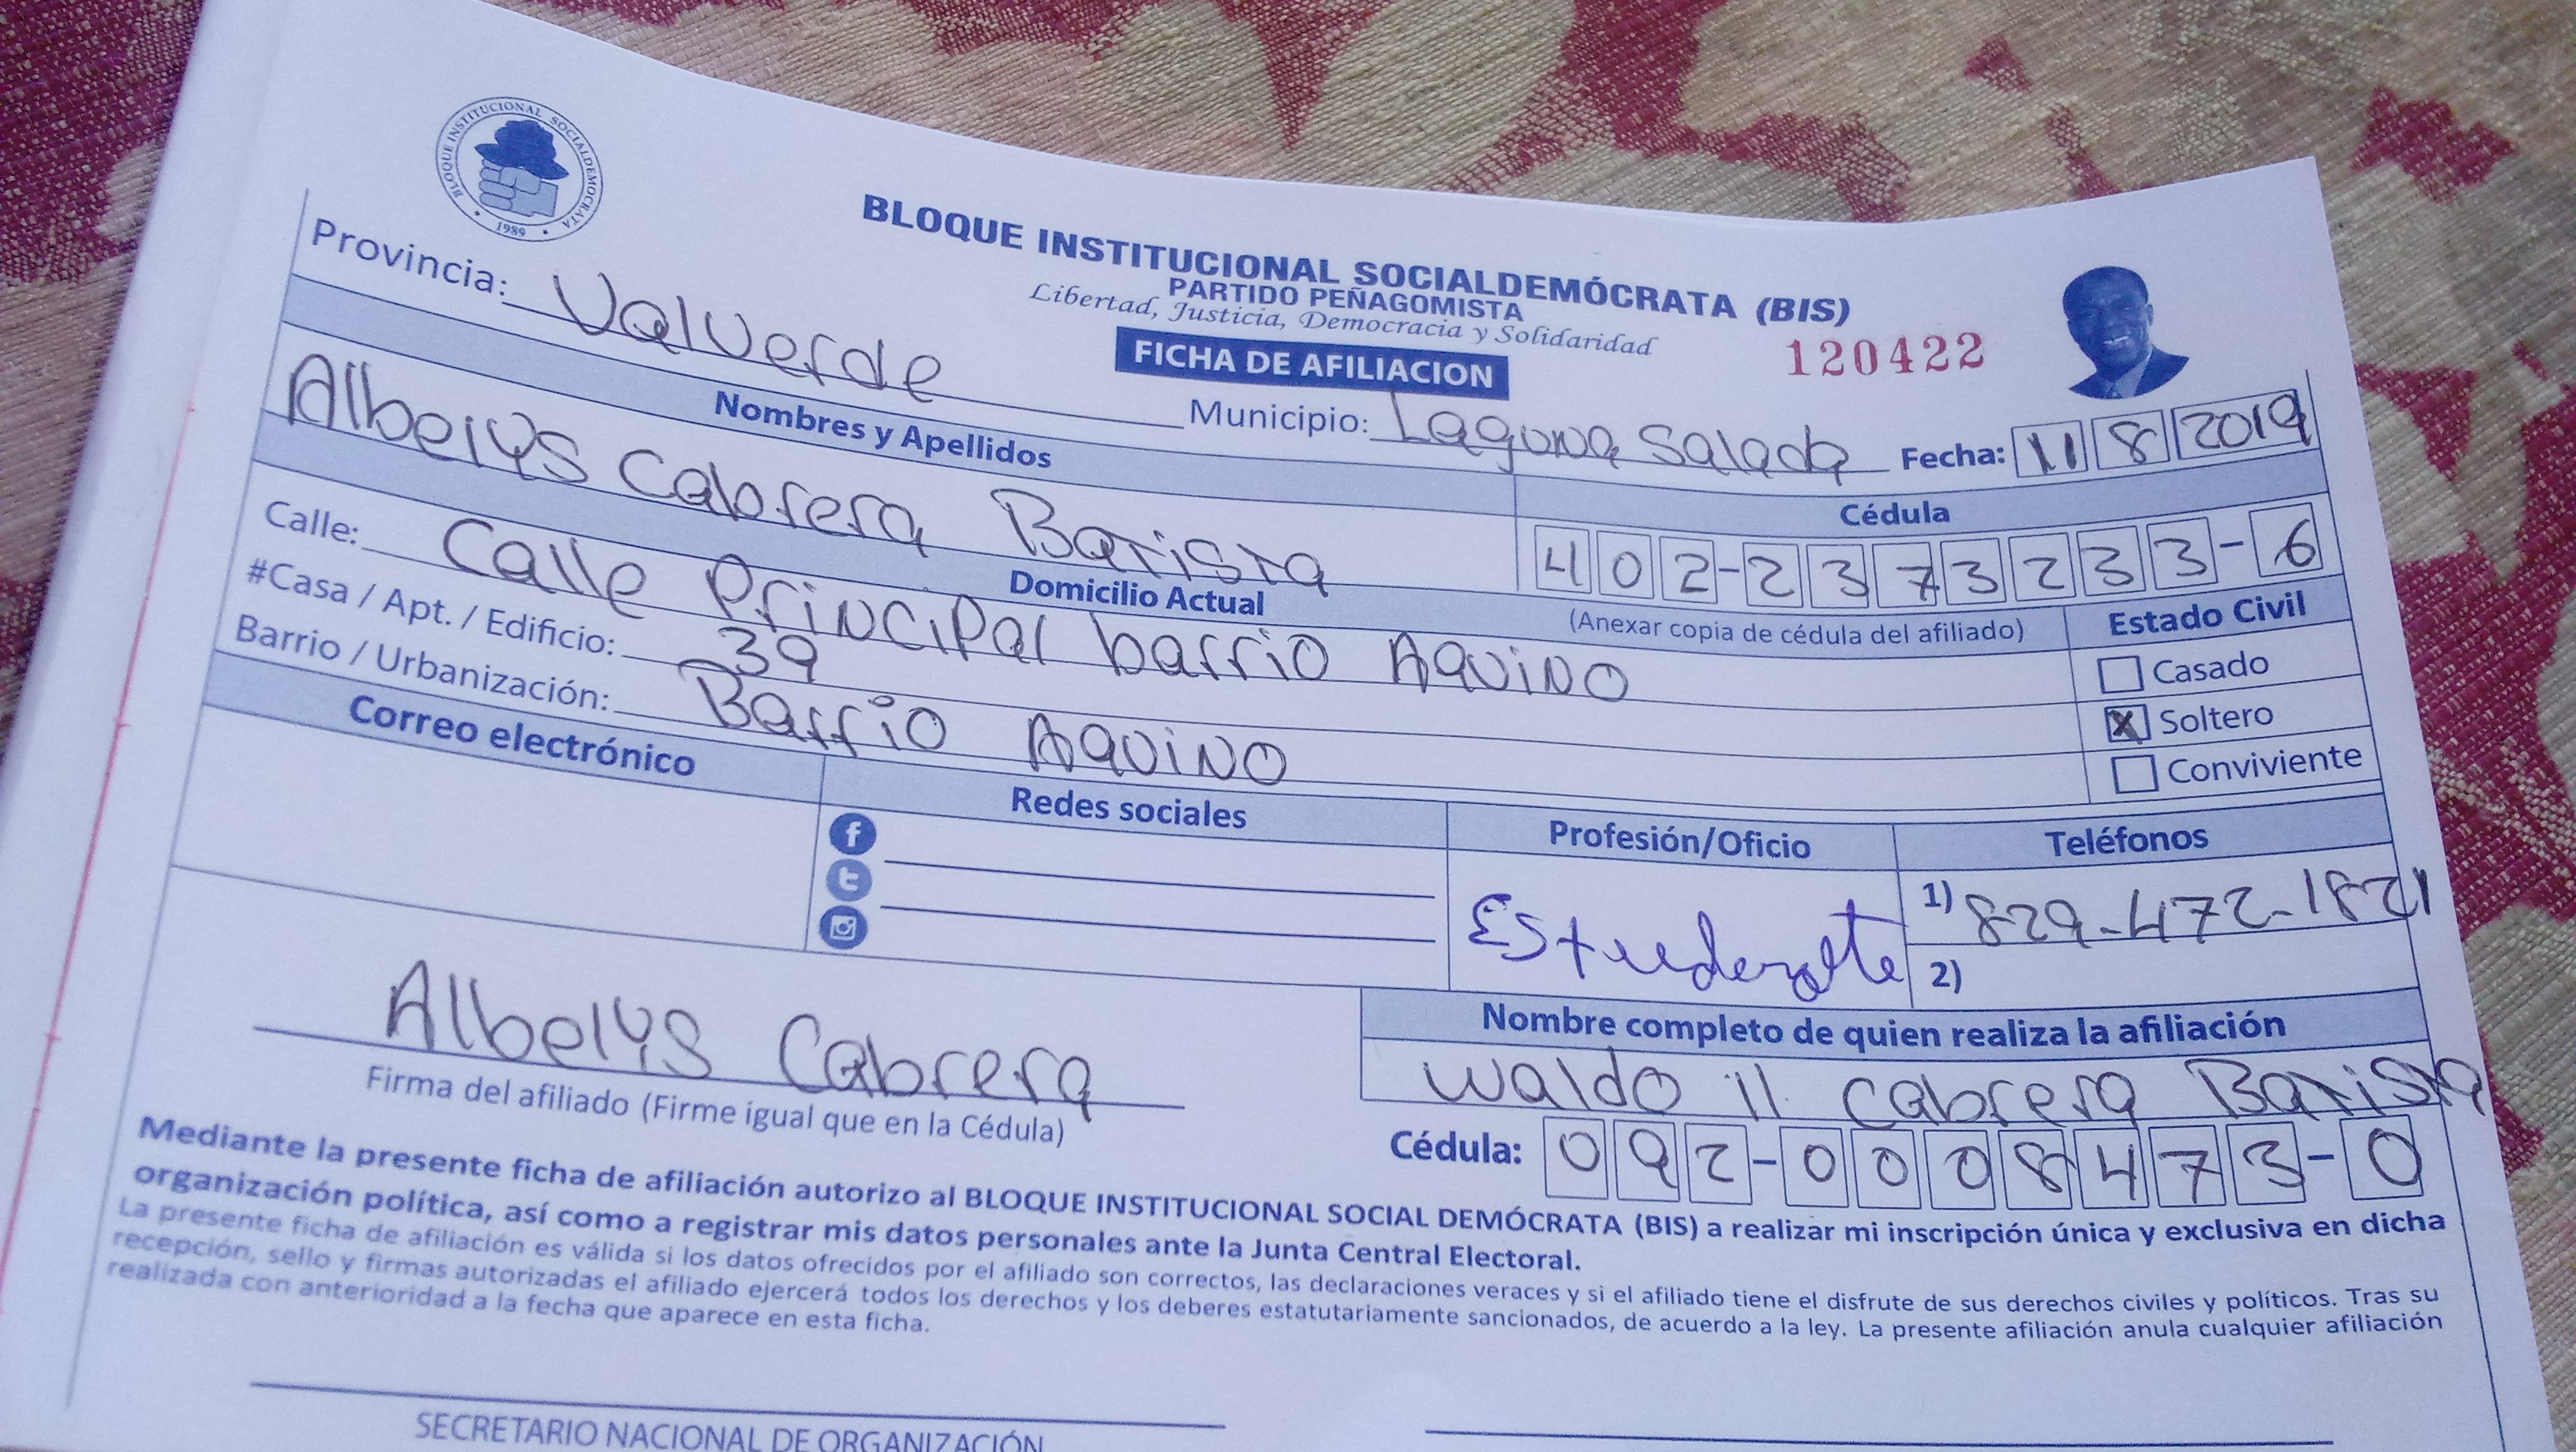 BLOQUE INSTITUCIONAL SOCIALDEMOCRATA
1989
BLOQUE INSTITUCIONAL SOCIALDEMÓCRATA (BIS)
PARTIDO PEÑAGOMISTA
Libertad, Justicia, Democracia y Solidaridad
FICHA DE AFILIACION
120422
Provincia: Valverde Municipio: Laguna Salada Fecha: 11 8 2019
Nombres y Apellidos Cédula
Albelys Cabrera Batista 402-2373233-6
Domicilio Actual (Anexar copia de cédula del afiliado) Estado Civil
Calle: Calle Principal barrio Aquino
Casado
#Casa / Apt. / Edificio: 39
X Soltero
Barrio / Urbanización: Barrio Aquino
Conviviente
Correo electrónico Redes sociales Profesión/Oficio Teléfonos
f
t
1) 829-472-1821
2)
Albelys Cabrera
Firma del afiliado (Firme igual que en la Cédula)
Nombre completo de quien realiza la afiliación
Waldo 11 Cabrera Batista
Cédula: 092-0008473-0
Mediante la presente ficha de afiliación autorizo al BLOQUE INSTITUCIONAL SOCIAL DEMÓCRATA (BIS) a realizar mi inscripción única y exclusiva en dicha
organización política, así como a registrar mis datos personales ante la Junta Central Electoral.
La presente ficha de afiliación es válida si los datos ofrecidos por el afiliado son correctos, las declaraciones veraces y si el afiliado tiene el disfrute de sus derechos civiles y políticos. Tras su
recepción, sello y firmas autorizadas el afiliado ejercerá todos los derechos y los deberes estatutariamente sancionados, de acuerdo a la ley. La presente afiliación anula cualquier afiliación
realizada con anterioridad a la fecha que aparece en esta ficha.
SECRETARIO NACIONAL DE ORGANIZACIÓN